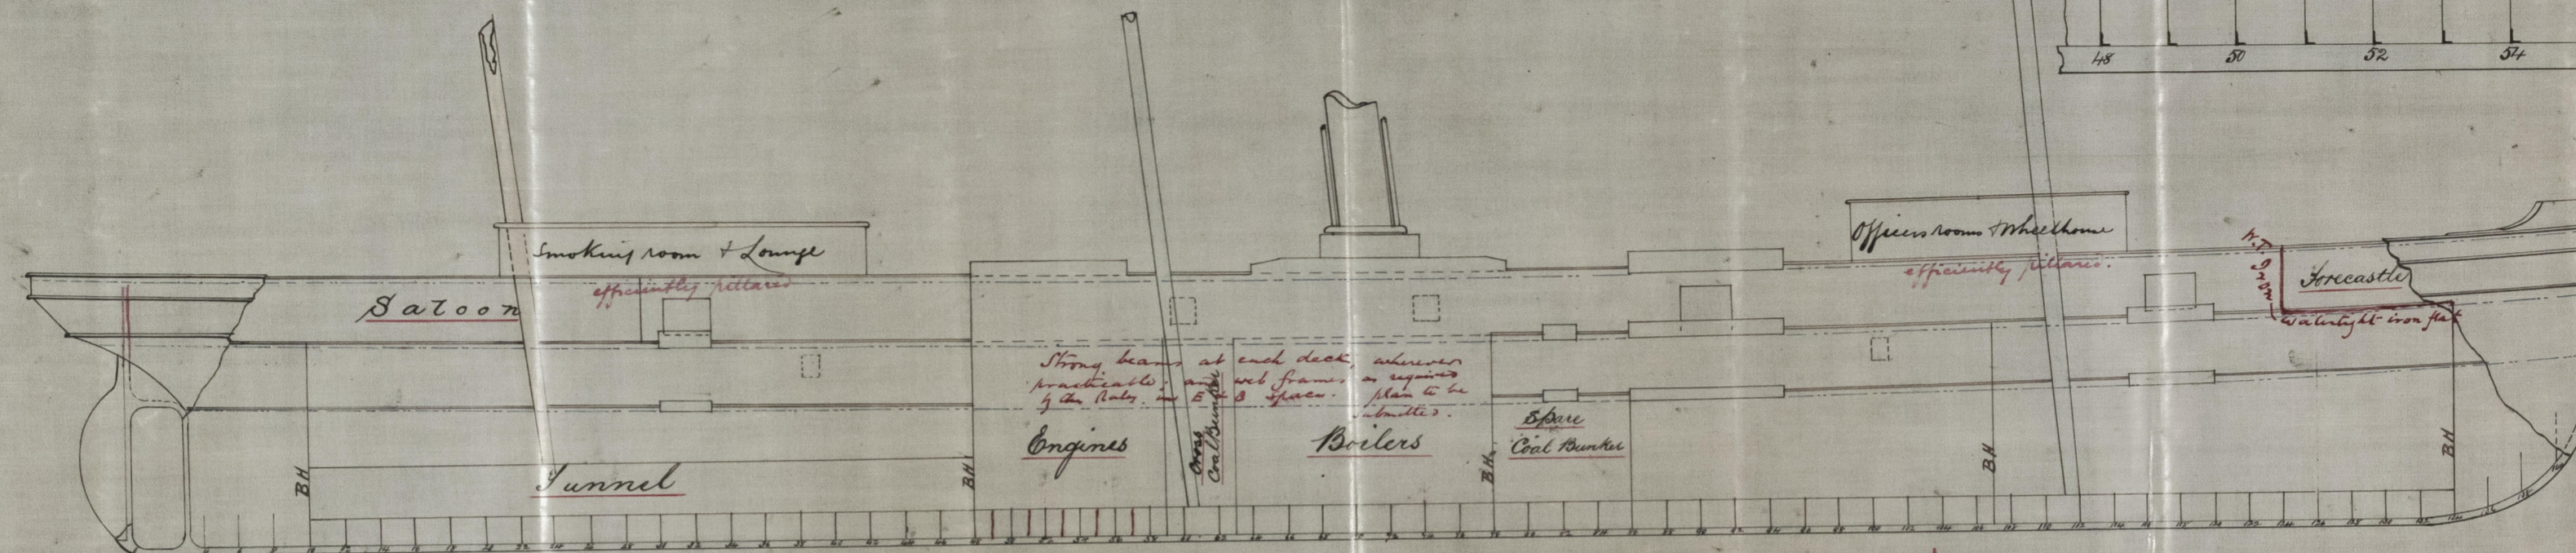 48 50 52 54
Smoking room & Lounge
efficiently pillared
Saloon
Officers rooms & Wheelhouse
efficiently pillared.
W.T. Iron
Forecastle
Watertight iron flat
Strong beams at each deck, wherever
practicable; and web frames as required
by the Rules, in E & B space. plan to be
submitted.
Engines
Cross
Coal Bunker
Boilers
Spare
Coal Bunker
Tunnel
BH
BH
BH
BH
BH